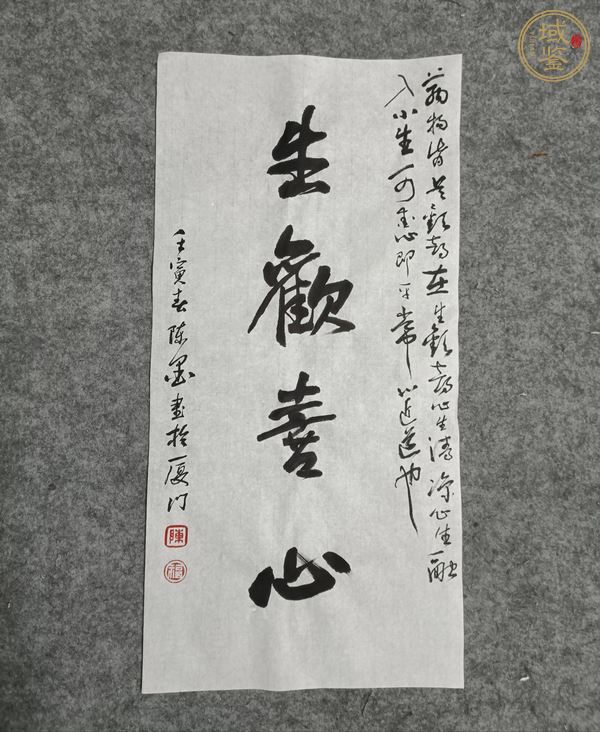 万物皆是歡喜在生歡喜心生清凉心生融
入心生
心即平常心近道也
生歡喜心
壬寅春陈墨書於厦门
陳
域鉴